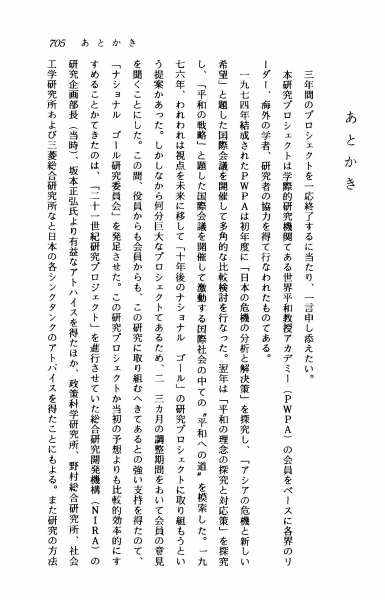 705 あとかき
あとかき
三年間のプロシェクトを一応終了するに当たり、一言申し添えたい。
本研究プロシェクトは学際的研究機関てある世界平和教授アカデミー（PWPA）の会員をベースに各界のリ
ーダー、海外の学者、研究者の協力を得て行なわれたものてある。
一九七四年結成されたPWPAは初年度に「日本の危機の分析と解決策」を探究し、「アシアの危機と新しい
希望」と題した国際会議を開催して多角的な比較検討を行なった。翌年は「平和の理念の探究と対応策」を探究
し、「平和の戦略」と題した国際会議を開催して激動する国際社会の中ての〝平和への道〟を模索した。一九
七六年、われわれは視点を未来に移して「十年後のナショナル ゴール」の研究プロシェクトに取り組もうとい
う提案かあった。しかしなから何分巨大なプロシェクトてあるため、二 三カ月の調整期間をおいて会員の意見
を聞くことにした。この間、役員からも会員からも、この研究に取り組むへきてあるとの強い支持を得たのて、
「ナショナル ゴール研究委員会」を発足させた。この研究プロシェクトか当初の予想よりも比較的効率的にす
すめることかてきたのは、「二十一世紀研究プロジェクト」を進行させていた総合研究開発機構（NIRA）の
研究企画部長（当時）、坂本正弘氏より有益なアトハイスを得たほか、政策科学研究所、野村総合研究所、社会
工学研究所および三菱総合研究所なと日本の各シンクタンクのアトバイスを得たことにもよる。また研究の方法